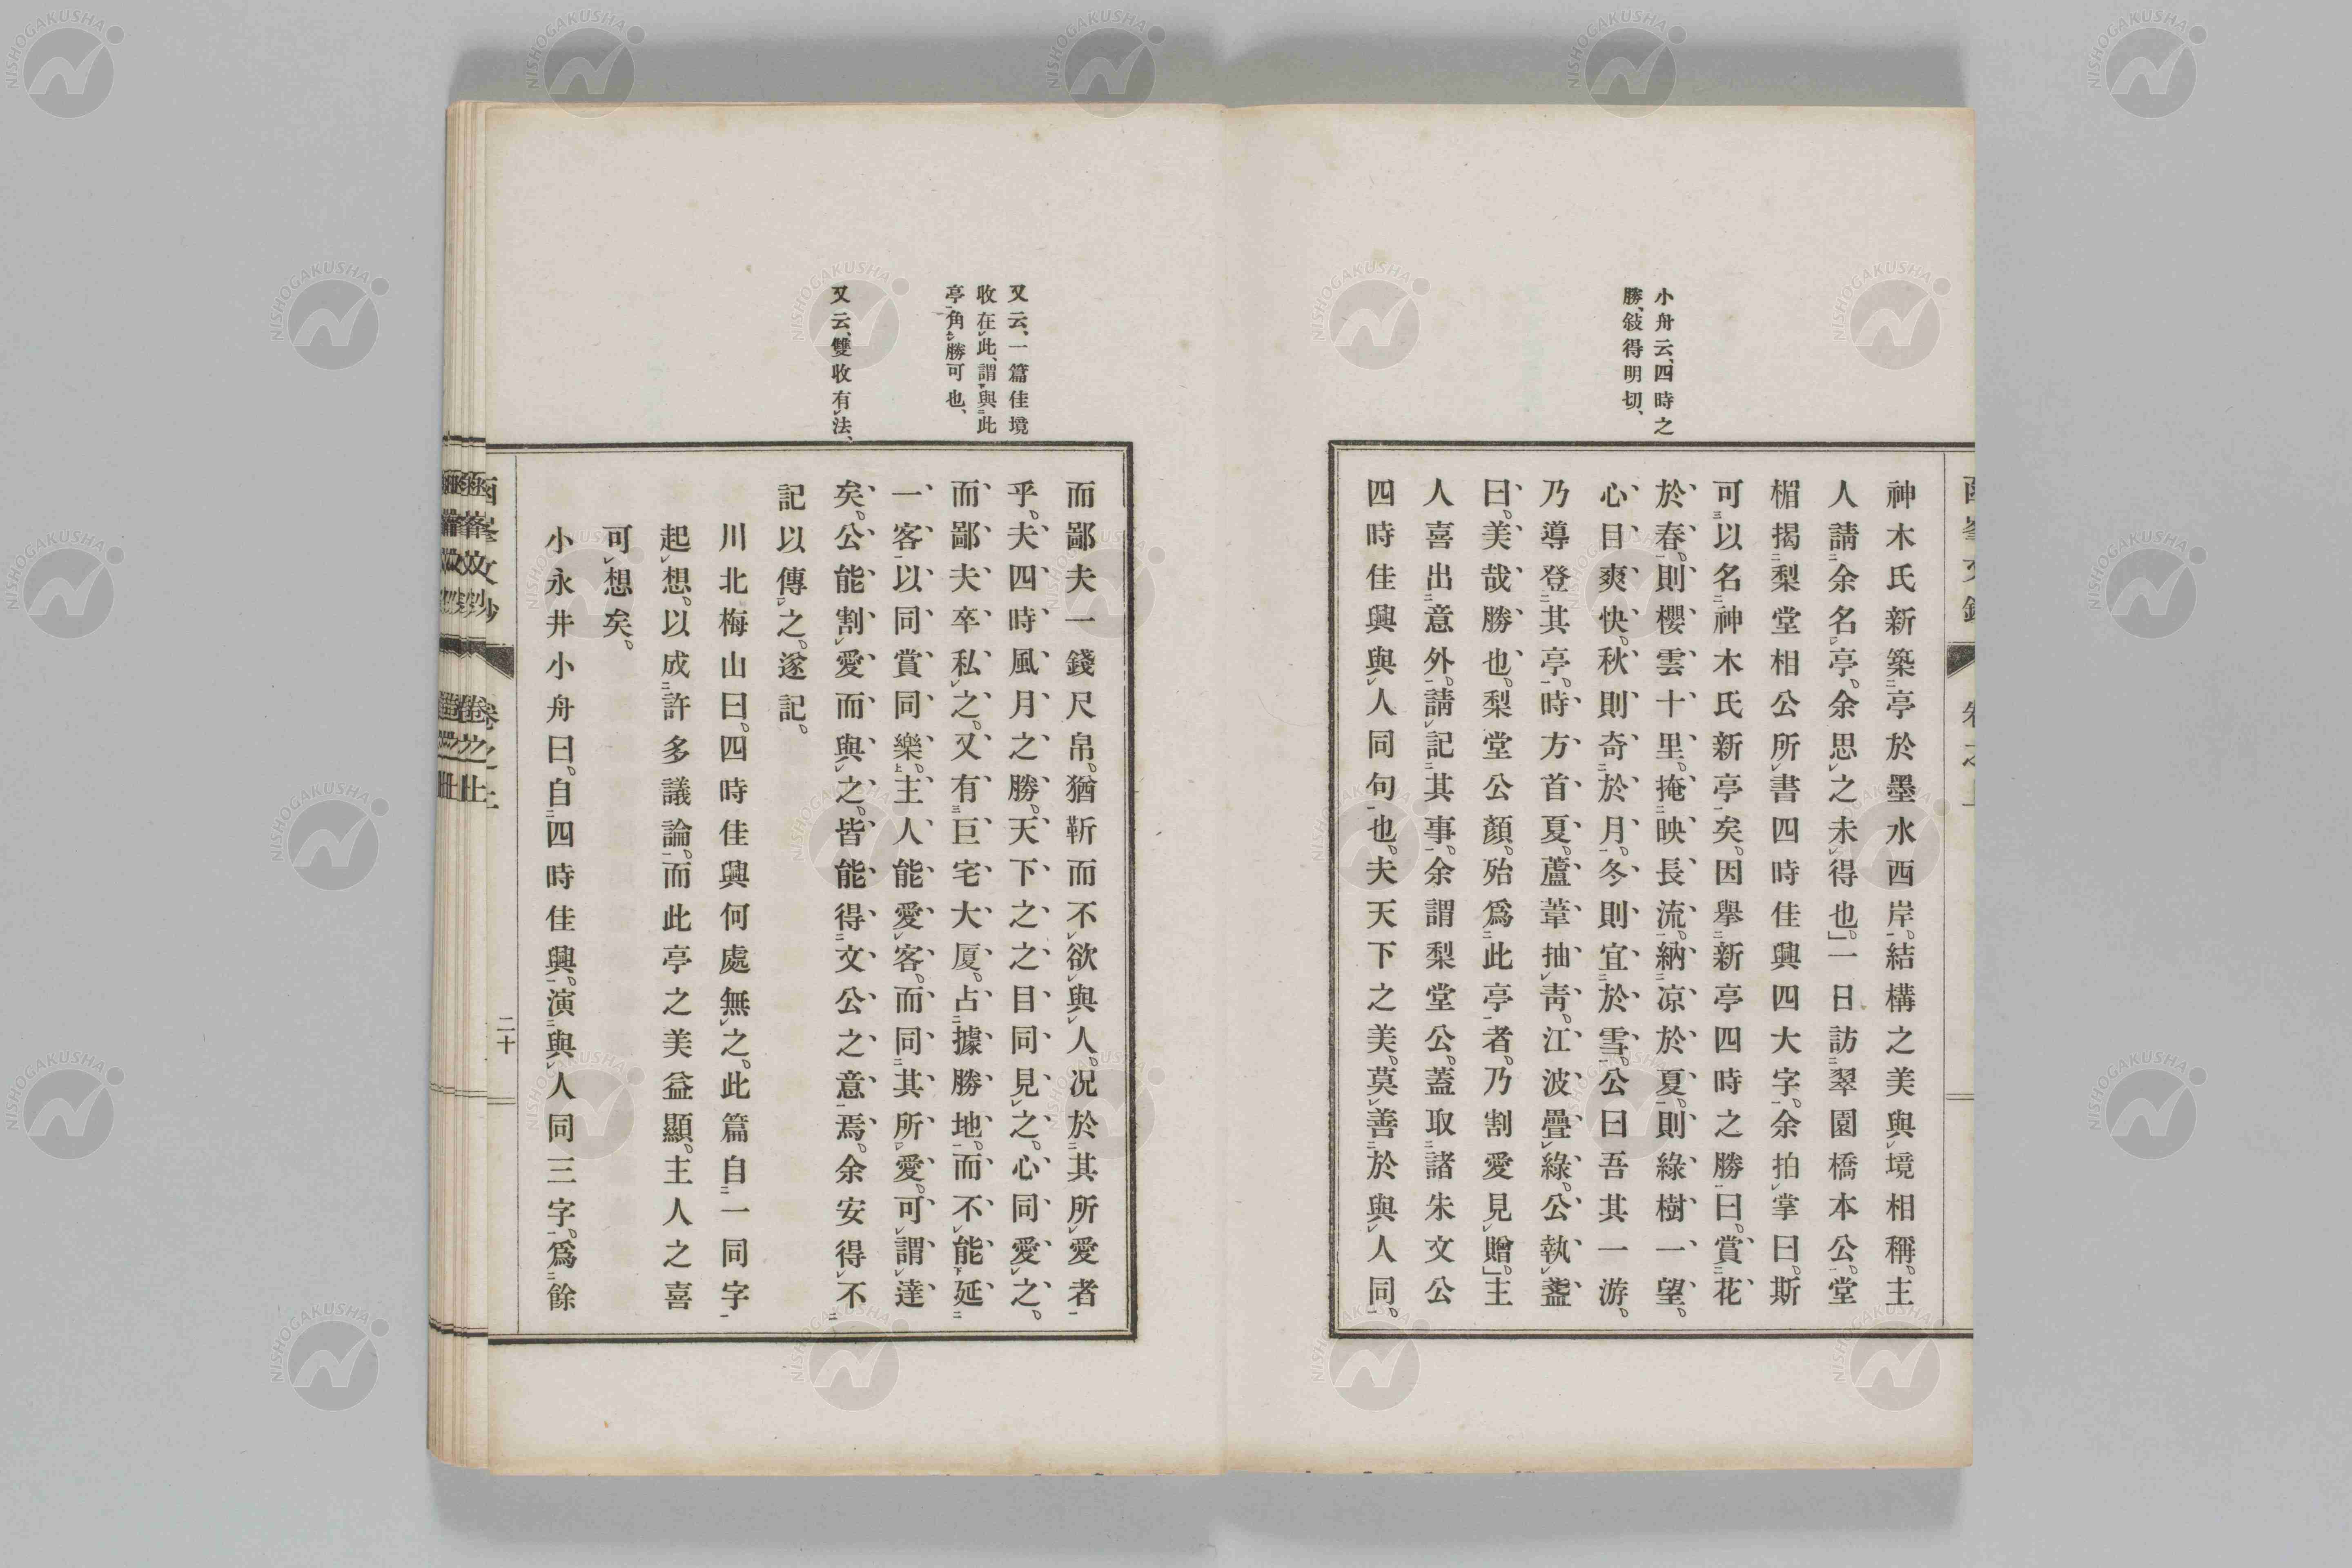 小舟云、四時之
勝、敍得明切、
神木氏新築亭於墨水西岸。結構之美與境相稱。主
人請余名亭。余思之未得也。」一日訪翠園橋本公。堂
楣揭梨堂相公所書四時佳興四大字。余拍掌曰。斯
可以名神木氏新亭矣。因擧新亭四時之勝曰。賞花
於春。則櫻雲十里。掩映長流。納凉於夏。則綠樹一望。
心目爽快。秋則奇於月。冬則宜於雪。公曰吾其一游。
乃導登其亭。時方首夏。蘆葦抽靑。江波疊綠。公執盞
曰。美哉勝也。梨堂公顏。殆爲此亭者。乃割愛見贈。」主
人喜出意外。請記其事。余謂梨堂公。蓋取諸朱文公
四時佳興與人同句也。夫天下之美。莫善於與人同。
又云、一篇佳境
收在此、謂與此
亭角勝可也、
又云、雙收有法、
而鄙夫一錢尺帛。猶靳而不欲與人。况於其所愛者
乎。夫四時風月之勝。天下之之目同見之。心同愛之。
而鄙夫卒私之。又有巨宅大厦。占據勝地。而不能延
一客以同賞同樂。主人能愛客。而同其所愛。可謂達
矣。公能割愛而與之。皆能得文公之意焉。余安得不
記以傳之。遂記。
川北梅山曰。四時佳興何處無之。此篇自一同字
起想。以成許多議論。而此亭之美益顯。主人之喜
可想矣。
小永井小舟曰。自四時佳興。演與人同三字。爲餘
卷之上
二十